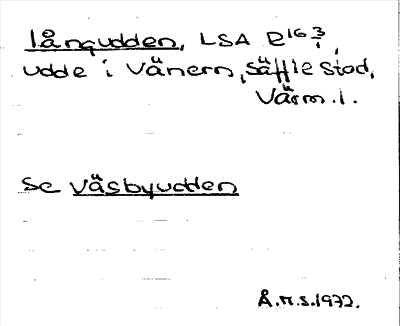 långudden, LSA R16 3/1,
udde i Vänern, Säffle stad,
Värm. l.
se Väsbyudden
Å.H.S.1972.